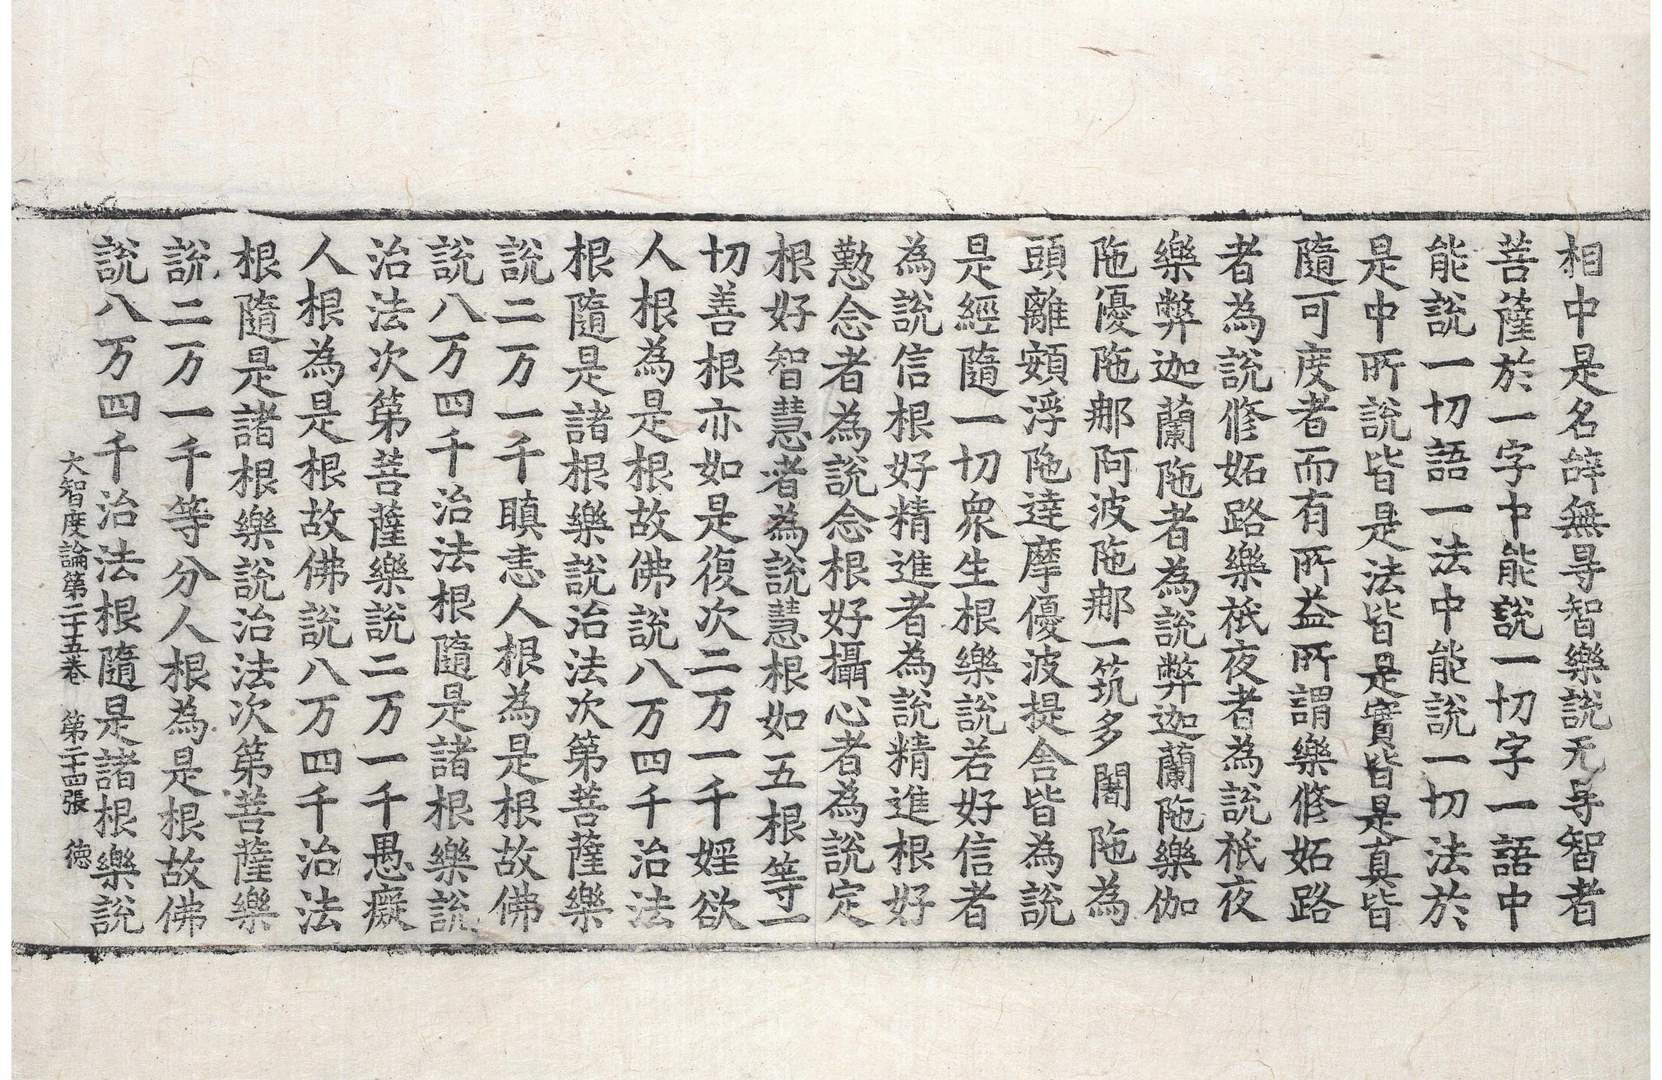 相中是名辞無㝵智樂說无㝵智者
菩薩於一字中能說一切字一語中
能說一切語一法中能說一切法於
是中所說皆是法皆是實皆是真皆
隨可度者而有所益所謂樂修妬路
者為說修妬路樂祇夜者為說祇夜
樂弊迦蘭陁者為說弊迦蘭陁樂伽
陁優陁䣝阿波陁䣝一筑多闍陁為
頭離頞浮陁達摩優波提舍皆為說
是經隨一切衆生根樂說若好信者
為說信根好精進者為說精進根好
懃念者為說念根好攝心者為說定
根好智慧者為說慧根如五根等一
切善根亦如是復次二万一千婬欲
人根為是根故佛說八万四千治法
根隨是諸根樂說治法次第菩薩樂
說二万一千瞋恚人根為是根故佛
說八万四千治法根隨是諸根樂說
治法次第菩薩樂說二万一千愚癡
人根為是根故佛說八万四千治法
根隨是諸根樂說治法次第菩薩樂
說二万一千等分人根為是根故佛
說八万四千治法根隨是諸根樂說
大智度論第二十五卷 第二十四張 徳